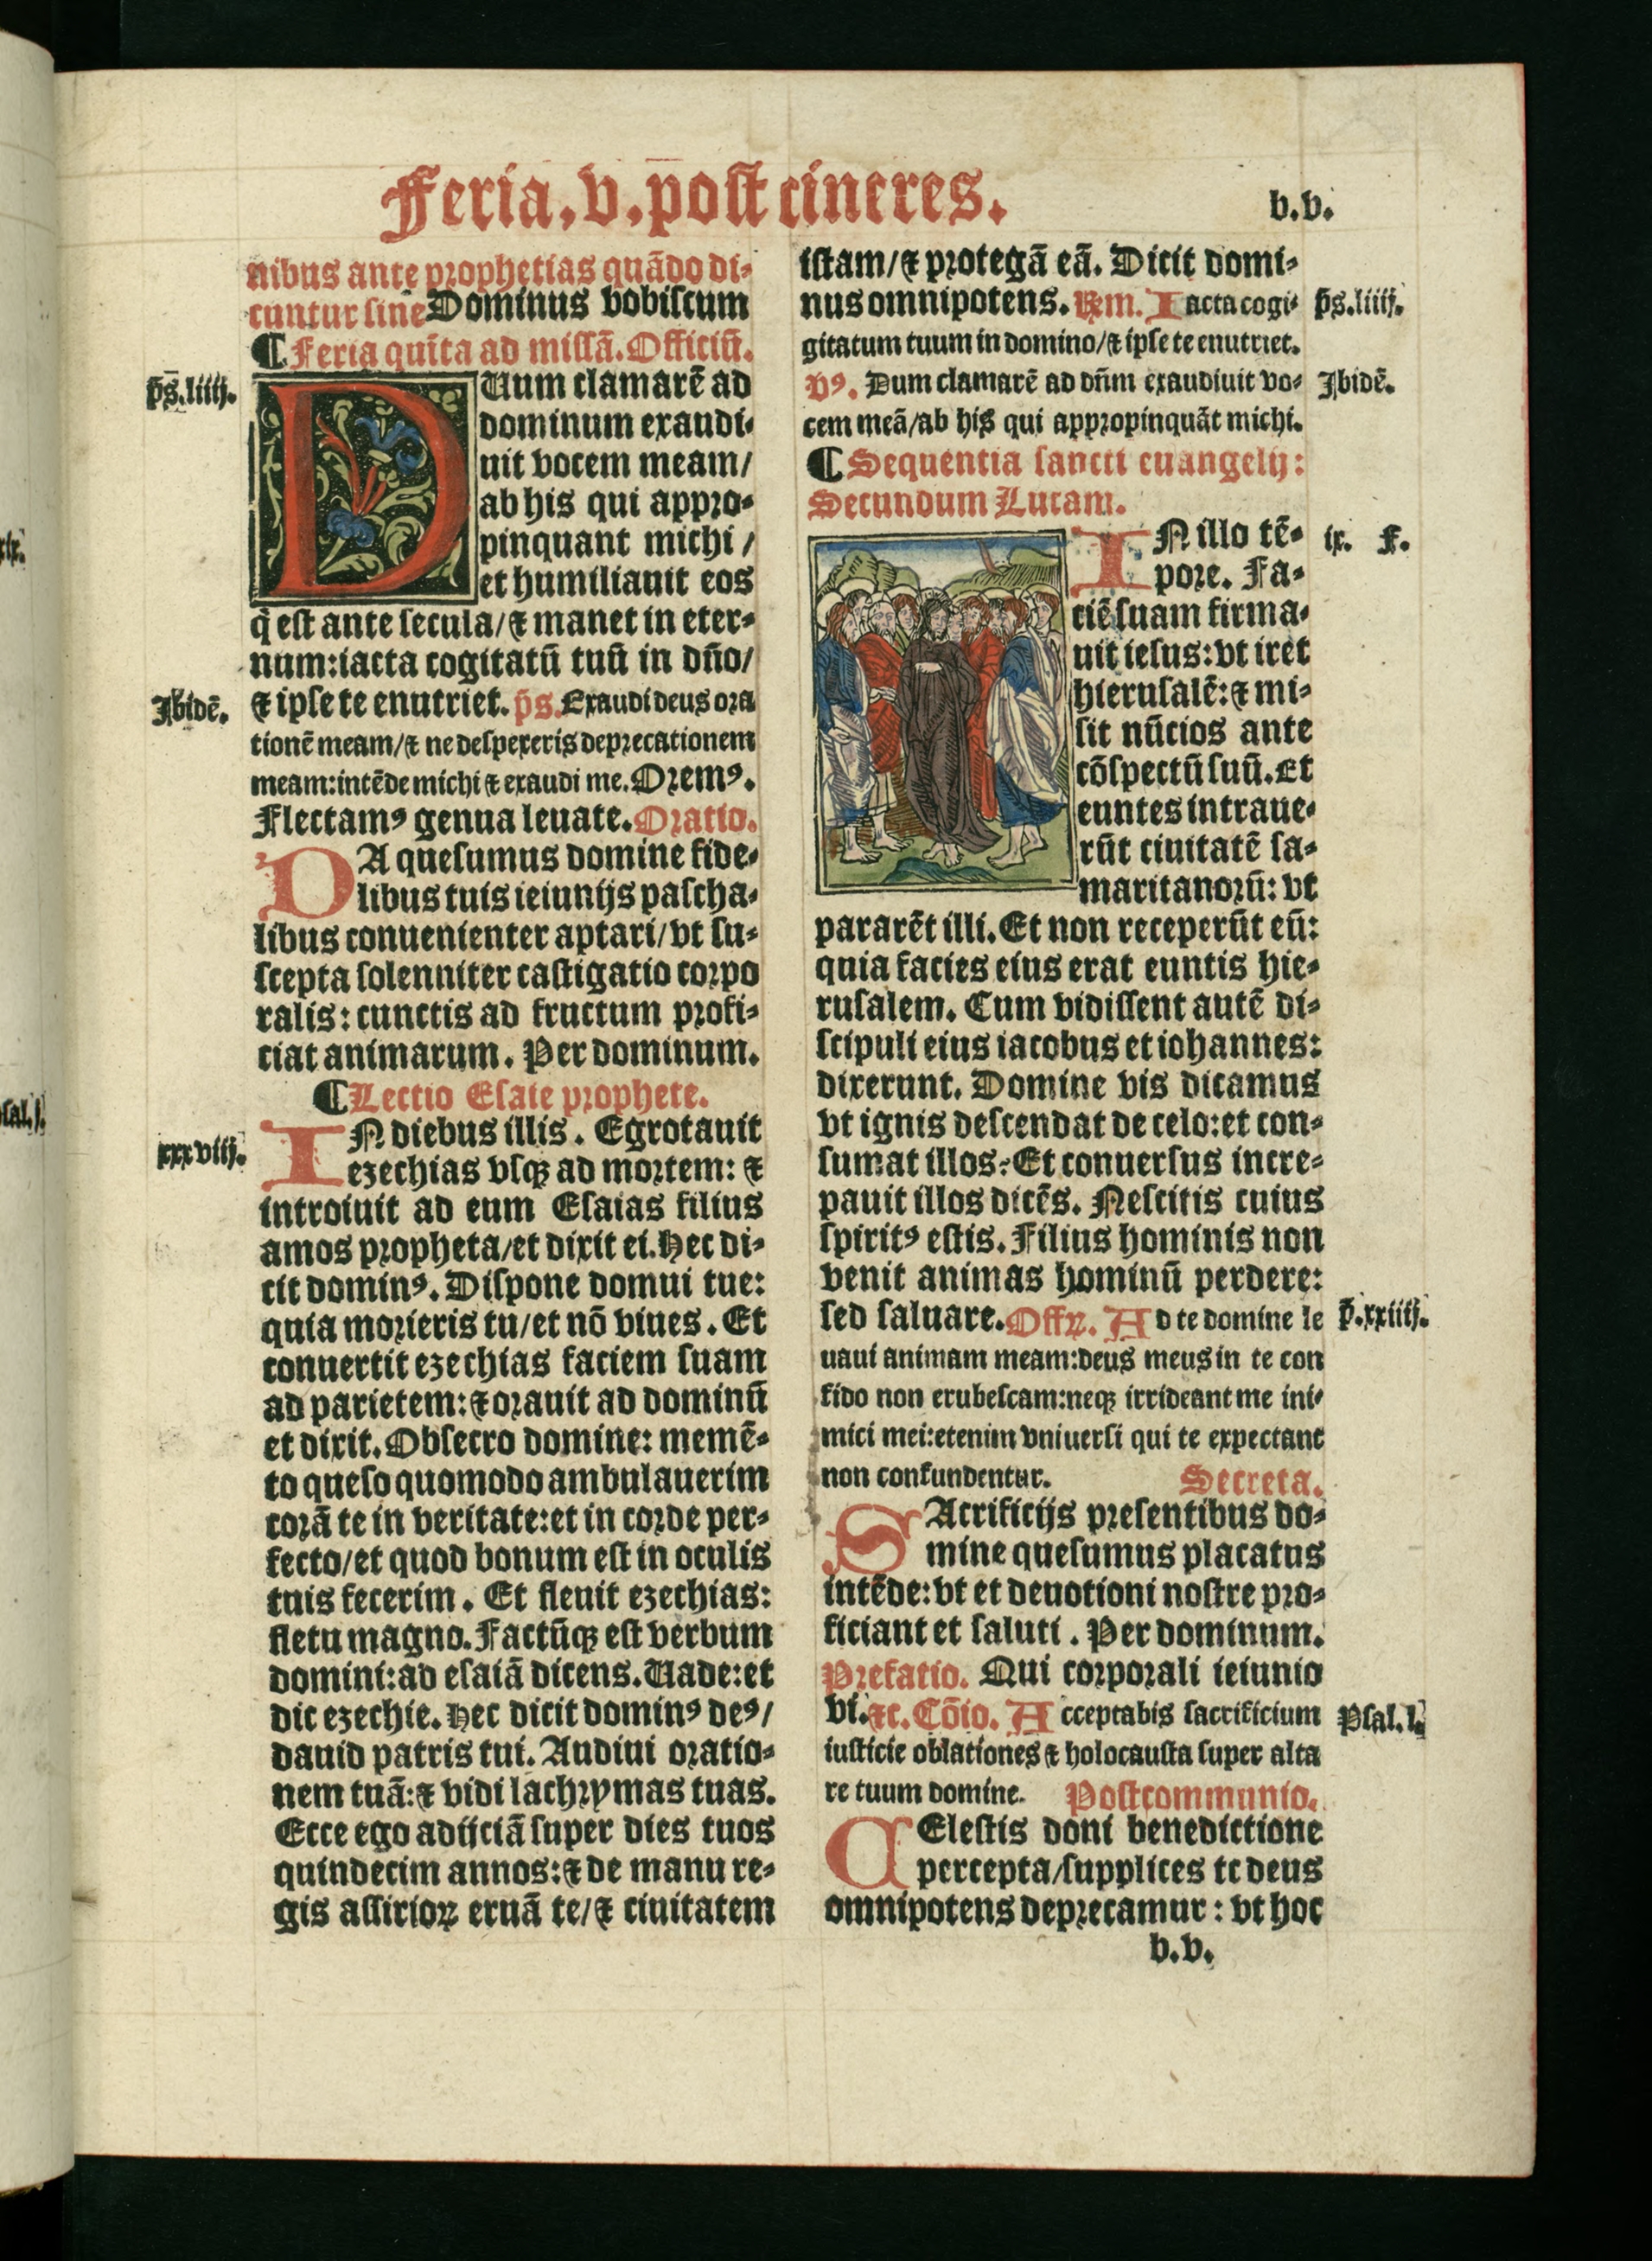 Feria.v.post cineres.
b.v.
nibus ante prophetias quãdo di-
cuntur sine Dominus vobiscum
¶ Feria quīta ad missã. Officiũ.
ps.liiij.
DUum clamarē ad
dominum exaudi-
uit vocem meam/
ab his qui appro-
pinquant michi /
et humiliauit eos
q̇ est ante secula/⁊ manet in eter-
num:iacta cogitatũ tuũ in dño/
Ibidē.
⁊ ipse te enutriet. p̄s. Exaudi deus ora
tionē meam/⁊ ne despexeris deprecationem
meam:intēde michi ⁊ exaudi me. Oremꝰ.
Flectamꝰ genua leuate. Oratio.
DA quesumus domine fide-
libus tuis ieiunijs pascha-
libus conuenienter aptari/vt su-
scepta solenniter castigatio corpo
ralis: cunctis ad fructum profi-
ciat animarum. Per dominum.
¶ Lectio Esaie prophete.
xxxviij.
IN diebus illis. Egrotauit
ezechias vsqꝫ ad mortem: ⁊
introiuit ad eum Esaias filius
amos propheta/et dixit ei. Hec di-
cit dominꝰ. Dispone domui tue:
quia morieris tu/et nõ viues. Et
conuertit ezechias faciem suam
ad parietem:⁊ orauit ad dominũ
et dixit. Obsecro domine: memē-
to queso quomodo ambulauerim
corã te in veritate:et in corde per-
fecto/et quod bonum est in oculis
tuis fecerim. Et fleuit ezechias:
fletu magno. Factũqꝫ est verbum
domini:ad esaiã dicens. Uade:et
dic ezechie. Hec dicit dominꝰ deꝰ/
dauid patris tui. Audiui oratio-
nem tuã:⁊ vidi lachrymas tuas.
Ecce ego adijciã super dies tuos
quindecim annos:⁊ de manu re-
gis assirioꝝ eruã te/⁊ ciuitatem
istam/⁊ protegã eã. Dicit domi-
nus omnipotens. Rm. Iacta cogi-
p̄s.liiij.
gitatum tuum in domino/⁊ ipse te enutriet.
vꝰ. Dum clamarē ad dñm exaudiuit vo-
Ibidē.
cem meã/ab his qui appropinquãt michi.
¶ Sequentia sancti euangelij:
Secundum Lucam.
IN illo tē-
ix. F.
pore. Fa-
ciē suam firma-
uit iesus:vt iret
hierusalē:⁊ mi-
sit nũcios ante
cõspectũ suũ. Et
euntes intraue-
rũt ciuitatē sa-
maritanorũ: vt
pararēt illi. Et non receperũt eũ:
quia facies eius erat euntis hie-
rusalem. Cum vidissent autē di-
scipuli eius iacobus et iohannes:
dixerunt. Domine vis dicamus
vt ignis descendat de celo:et con-
sumat illos? Et conuersus incre-
pauit illos dicēs. Nescitis cuius
spiritꝰ estis. Filius hominis non
venit animas hominũ perdere:
sed saluare. Offꝝ. Ad te domine le
p̄.xxiiij.
uaui animam meam:deus meus in te con
fido non erubescam:neqꝫ irrideant me ini-
mici mei:etenim vniuersi qui te expectant
non confundentur. Secreta.
SAcrificijs presentibus do-
mine quesumus placatus
intēde:vt et deuotioni nostre pro-
ficiant et saluti. Per dominum.
Prefatio. Qui corporali ieiunio
vi.⁊c. Cõio. Acceptabis sacrificium
Psal.l.
iusticie oblationes ⁊ holocausta super alta
re tuum domine. Postcommunio.
CElestis doni benedictione
percepta/supplices te deus
omnipotens deprecamur: vt hoc
b.v.